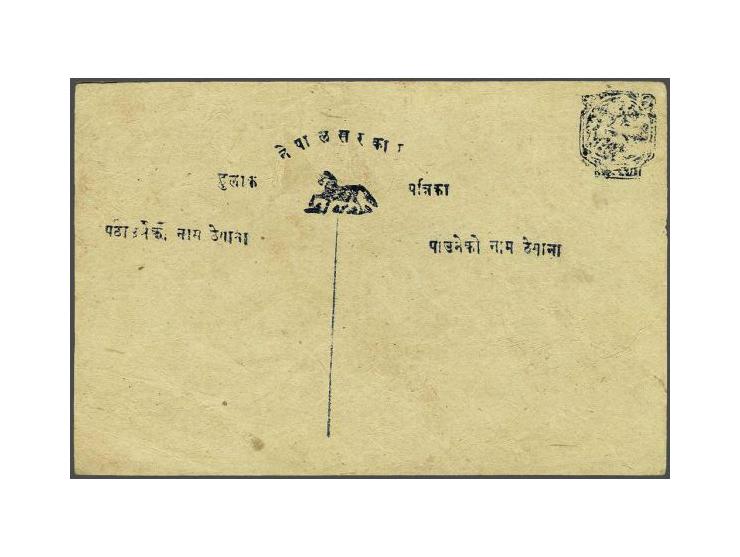 नेपाल सरकार
हुलाक पत्रिका
पठाउनेको नाम ठेगाना
पाउनेको नाम ठेगाना